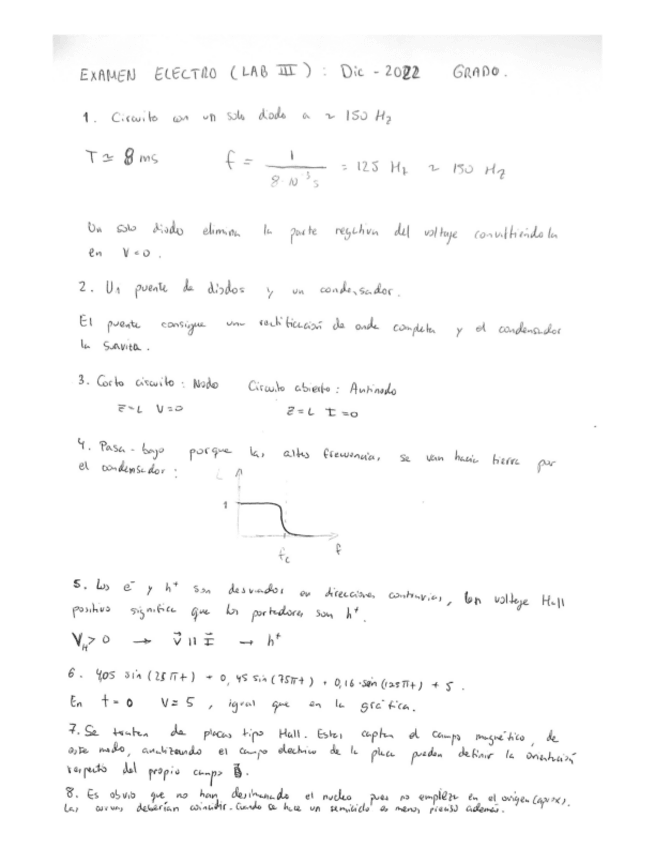 EXAMEN ELECTRO (LAB III) : Dic - 2022 GRADO.
1. Circuito con un solo diodo a ~ 150 Hz
T ≃ 8 ms f = 1 / 8·10⁻³ s = 125 Hz ~ 150 Hz
Un solo diodo elimina la parte negativa del voltaje convirtiendola
en V=0.
2. Un puente de diodos y un condensador.
El puente consigue una rectificación de onda completa y el condensador
la suaviza.
3. Corto circuito : Nodo Circuito abierto : Antinodo
Z=L V=0 Z=L I=0
4. Pasa-bajo porque las altas frecuencias se van hacia tierra por
el condensador :
1
fc f
5. Los e⁻ y h⁺ son desviados en direcciones contrarias, voltaje Hall
positivo significa que los portadores son h⁺.
V_H > 0 → v⃗ ıı I⃗ → h⁺
6. 4,05 sin (25πt) + 0,45 sin (75πt) + 0,16 sin (125πt) + 5.
En t=0 V=5, igual que en la gráfica.
7. Se tratan de placas tipo Hall. Estas captan el campo magnético, de
este modo, analizando el campo electrico de la placa pueden definir la orientación
respecto del propio campo B⃗.
8. Es obvio que no han desimanado el nucleo pues no empieza en el origen (aprox).
Las curvas deberían coincidir. Cuando se hace un semiciclo es menos, además.